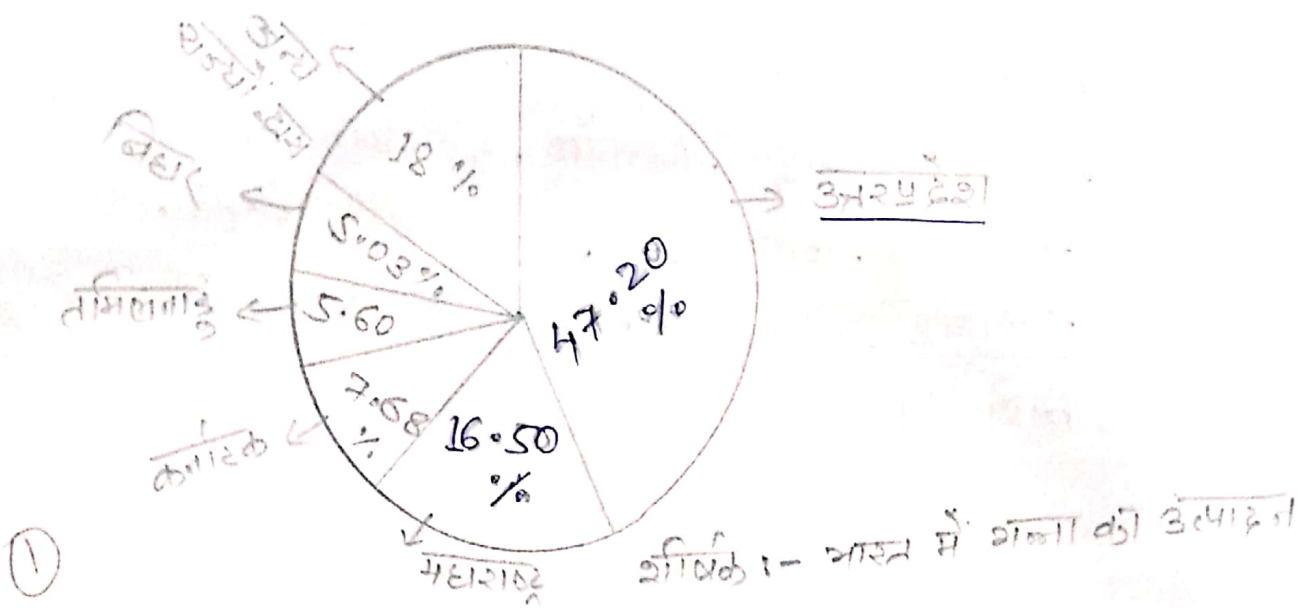 अन्य
राज्यों
18 %
बिहार
5.03 %
तमिलनाडु
5.60
कर्नाटक
7.68
%
16.50
%
महाराष्ट्र
47.20
%
उत्तरप्रदेश
शीर्षक :- भारत में गन्ना का उत्पादन
1